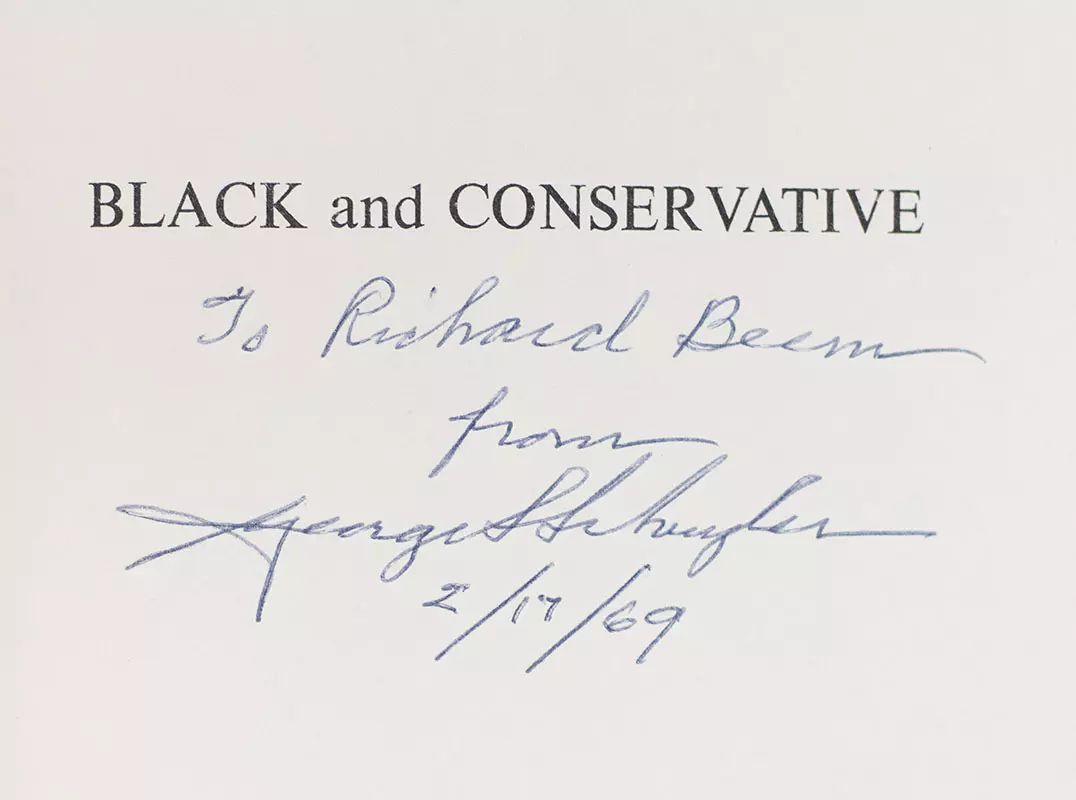 BLACK and CONSERVATIVE
To Richard Beem
from
George S Schuyler
2/17/69